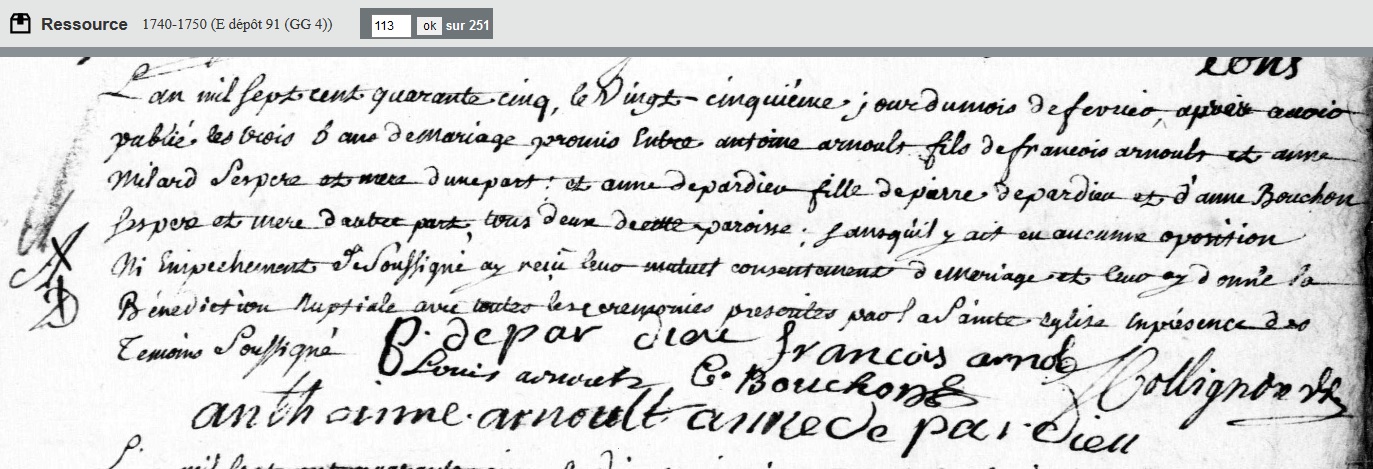 Ressource 1740-1750 (E dépôt 91 (GG 4)) 113 ok sur 251
L'an mil sept cent quarante cinq, le Vingt-cinquiéme jour du mois de fevrier, apprès avoir
publié les trois bans de Mariage promis Entre antoine arnoult fils de francois arnoult et anne
Milard Ses pere et mere d'une part ; et anne depardieu fille de pierre depardieu et d'anne Bouchon
Ses pere et mere d'autre part, tous deux de cette paroisse ; sans qu'il y ait eu aucune oposition
Ni Empechement Je Soussigné ay reçu leur mutuel consentement de Mariage et leur ay donné la
Bénédiction Nuptiale avec toutes les ceremonies prescrites par la Sainte Eglise En présence des
Temoins Soussigné
P. depar dieu francois arnod
Louis arnoult C. Bouchon Collignon
anthoinne arnoult anne de par dieu